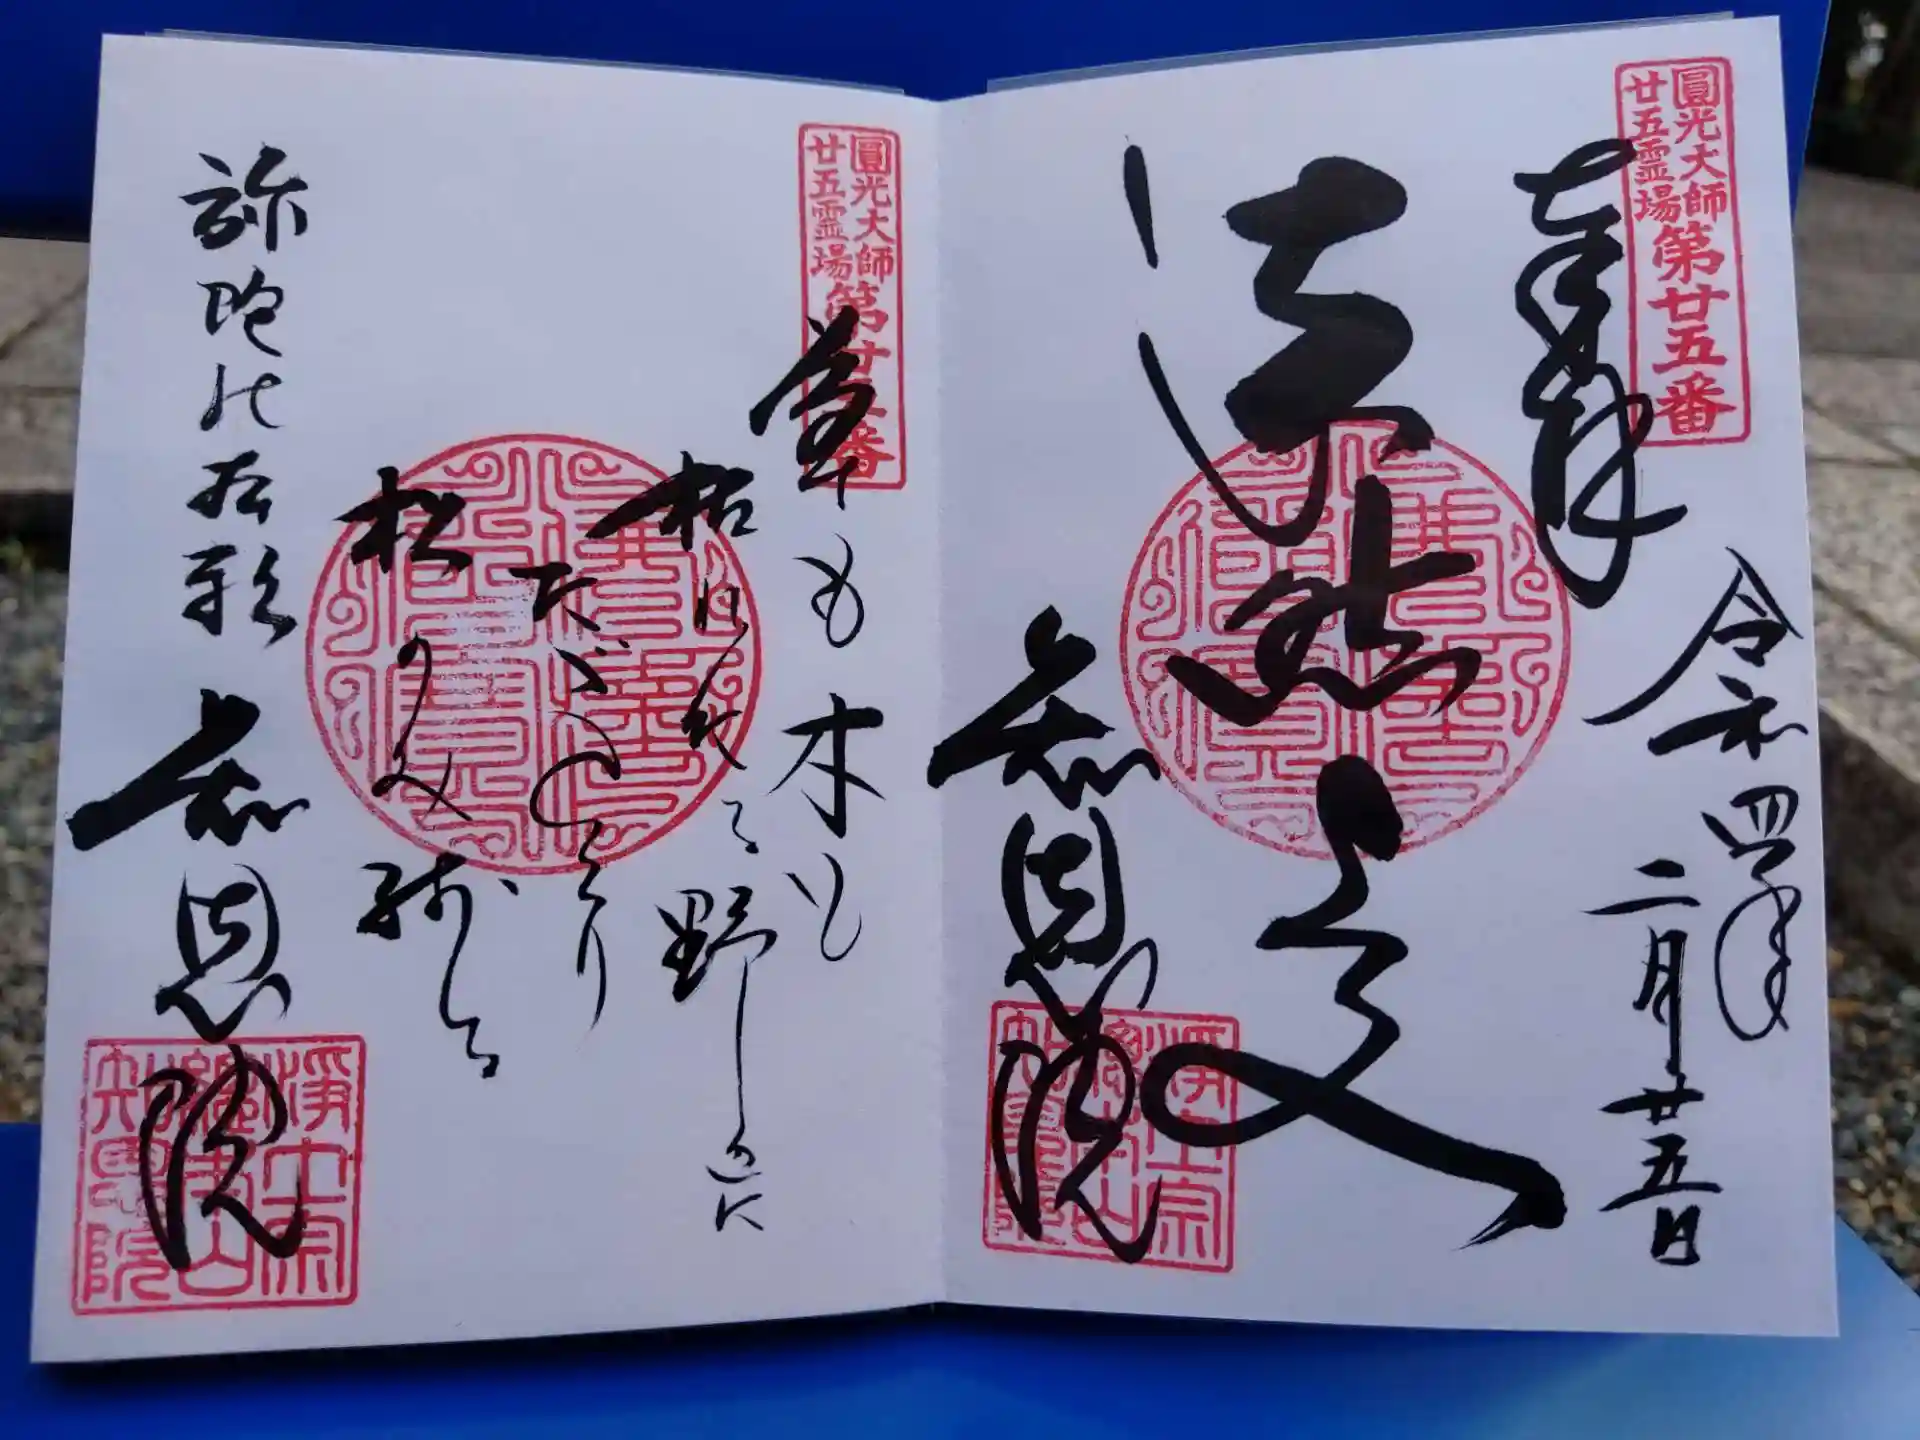 圓光大師
廿五霊場
第廿五番
奉拝
令和四年
二月廿五日
法然上人
知恩院
浄土宗
總本山
知恩院
圓光大師
廿五霊場
第廿五番
草も木も
枯れたる野辺に
ただひとり
松のみ残る
弥陀の本願
知恩院
浄土宗
總本山
知恩院